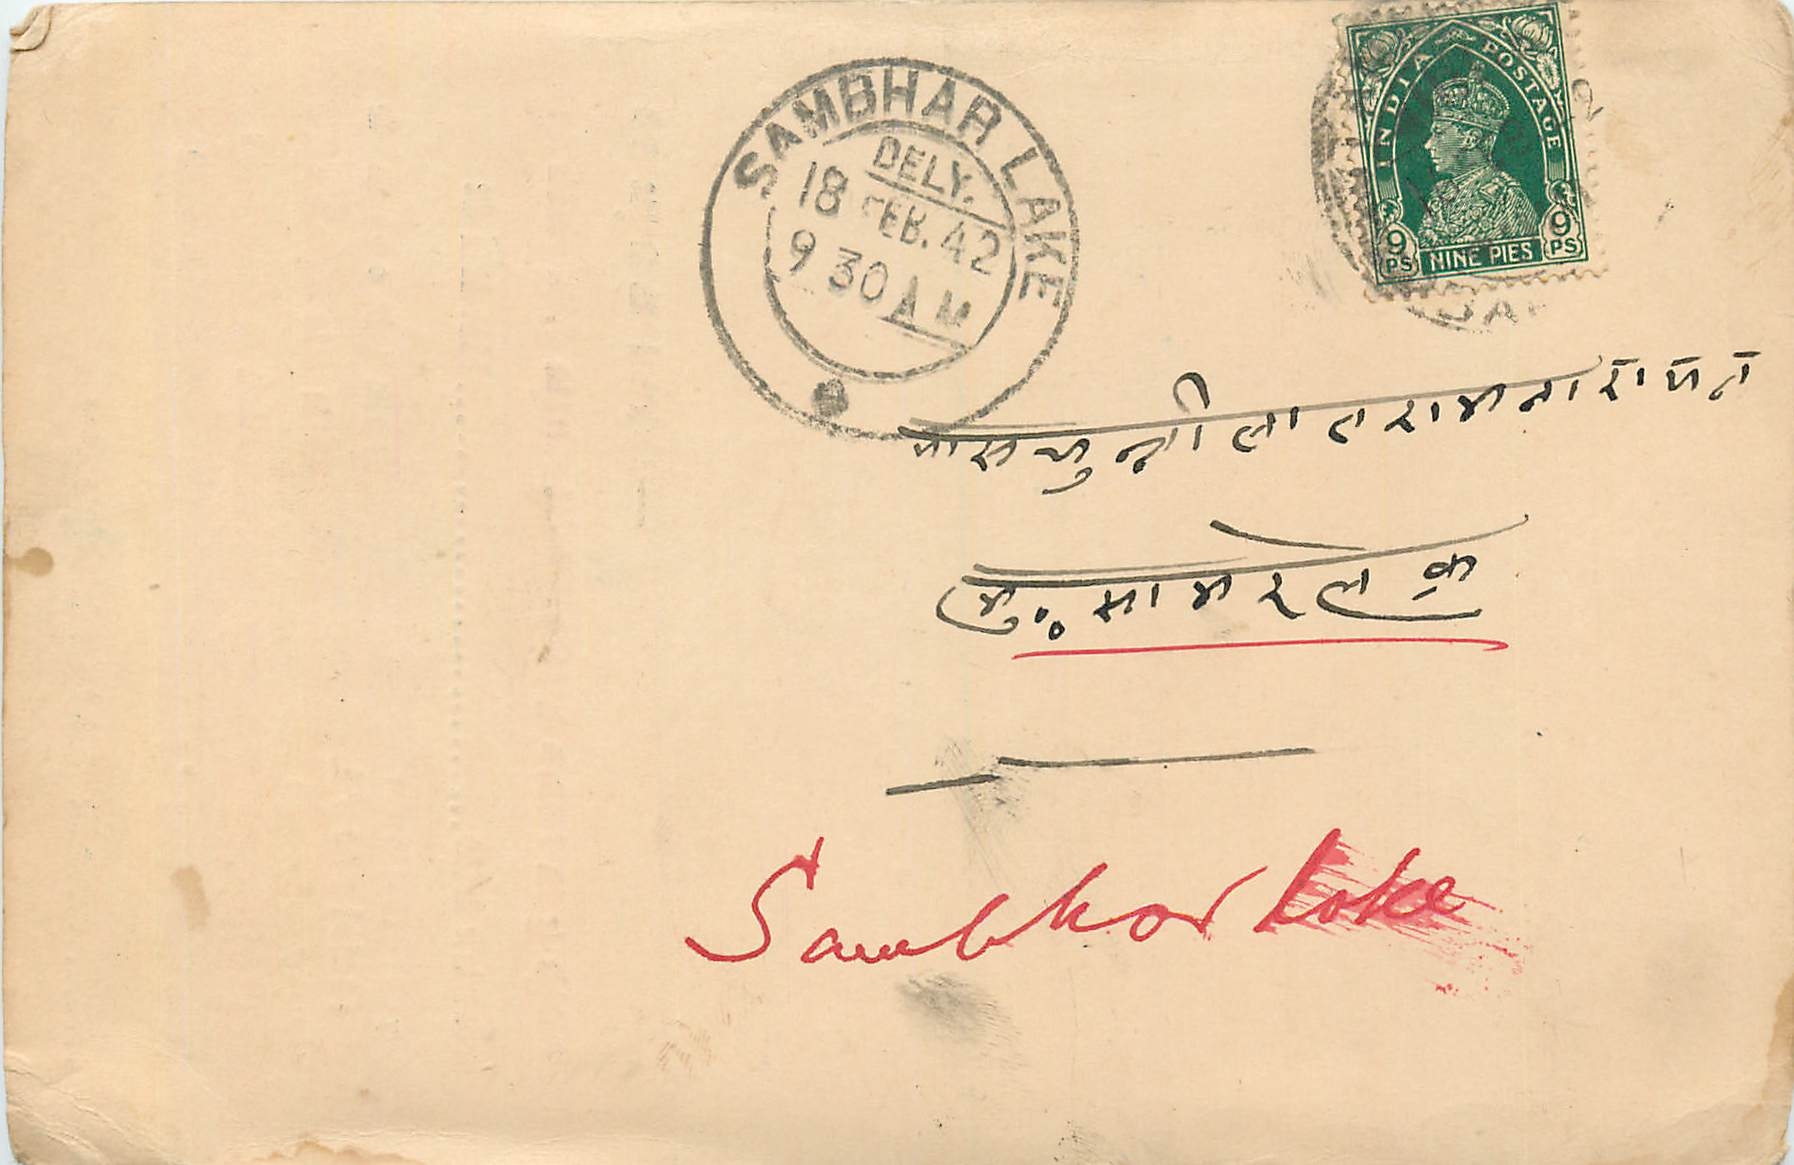 SAMBHAR LAKE
DELY.
18 FEB. 42
9 30 A M
INDIA POSTAGE
9 PS NINE PIES 9 PS
चुन्नीलाल रामनारायण
मु॰ सांभर लेक
Sambhar Lake